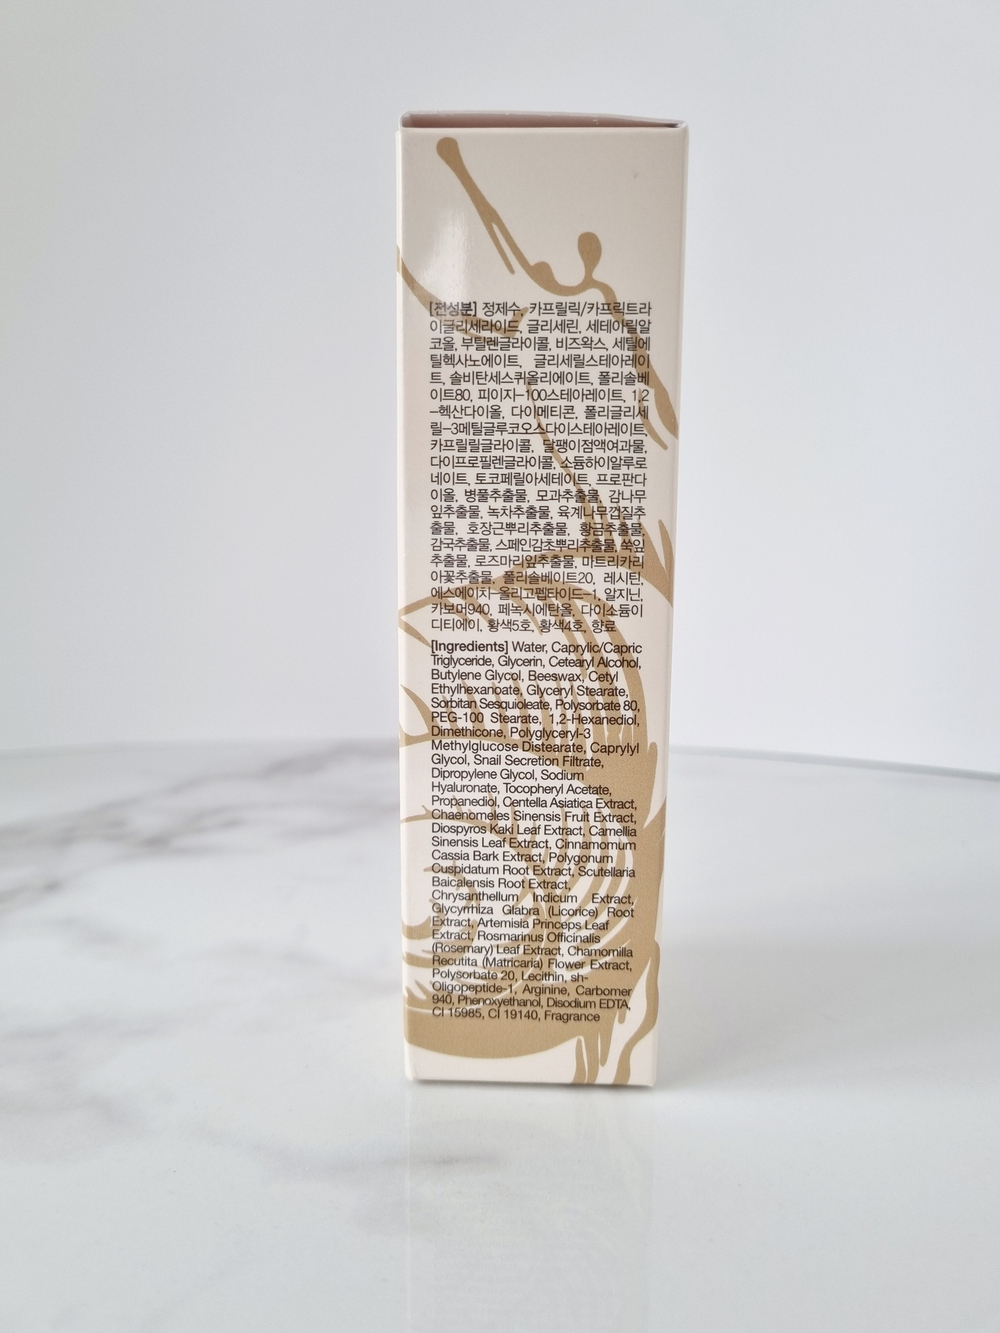 [전성분] 정제수, 카프릴릭/카프릭트라
이글리세라이드, 글리세린, 세테아릴알
코올, 부틸렌글라이콜, 비즈왁스, 세틸에
틸헥사노에이트, 글리세릴스테아레이
트, 솔비탄세스퀴올리에이트, 폴리솔베
이트80, 피이지-100스테아레이트, 1,2
-헥산다이올, 다이메티콘, 폴리글리세
릴-3메틸글루코오스다이스테아레이트,
카프릴릴글라이콜, 달팽이점액여과물,
다이프로필렌글라이콜, 소듐하이알루로
네이트, 토코페릴아세테이트, 프로판다
이올, 병풀추출물, 모과추출물, 감나무
잎추출물, 녹차추출물, 육계나무껍질추
출물, 호장근뿌리추출물, 황금추출물,
감국추출물, 스페인감초뿌리추출물, 쑥잎
추출물, 로즈마리잎추출물, 마트리카리
아꽃추출물, 폴리솔베이트20, 레시틴,
에스에이치-올리고펩타이드-1, 알지닌,
카보머940, 페녹시에탄올, 다이소듐이
디티에이, 황색5호, 황색4호, 향료
[Ingredients] Water, Caprylic/Capric
Triglyceride, Glycerin, Cetearyl Alcohol,
Butylene Glycol, Beeswax, Cetyl
Ethylhexanoate, Glyceryl Stearate,
Sorbitan Sesquioleate, Polysorbate 80,
PEG-100 Stearate, 1,2-Hexanediol,
Dimethicone, Polyglyceryl-3
Methylglucose Distearate, Caprylyl
Glycol, Snail Secretion Filtrate,
Dipropylene Glycol, Sodium
Hyaluronate, Tocopheryl Acetate,
Propanediol, Centella Asiatica Extract,
Chaenomeles Sinensis Fruit Extract,
Diospyros Kaki Leaf Extract, Camellia
Sinensis Leaf Extract, Cinnamomum
Cassia Bark Extract, Polygonum
Cuspidatum Root Extract, Scutellaria
Baicalensis Root Extract,
Chrysanthellum Indicum Extract,
Glycyrrhiza Glabra (Licorice) Root
Extract, Artemisia Princeps Leaf
Extract, Rosmarinus Officinalis
(Rosemary) Leaf Extract, Chamomilla
Recutita (Matricaria) Flower Extract,
Polysorbate 20, Lecithin, sh-
Oligopeptide-1, Arginine, Carbomer
940, Phenoxyethanol, Disodium EDTA,
CI 15985, CI 19140, Fragrance